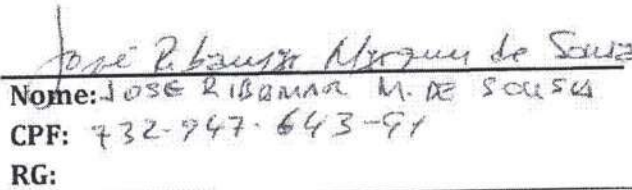 José Ribamar Marques de Sousa
Nome: JOSE RIBAMAR M. DE SOUSA
CPF: 732-947-643-91
RG: